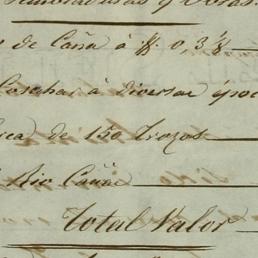 y obras
de Caña á $. 0,3⅛
Cosecha á diversas époc
de 150 Trozos
Rio Caña
Total Valor